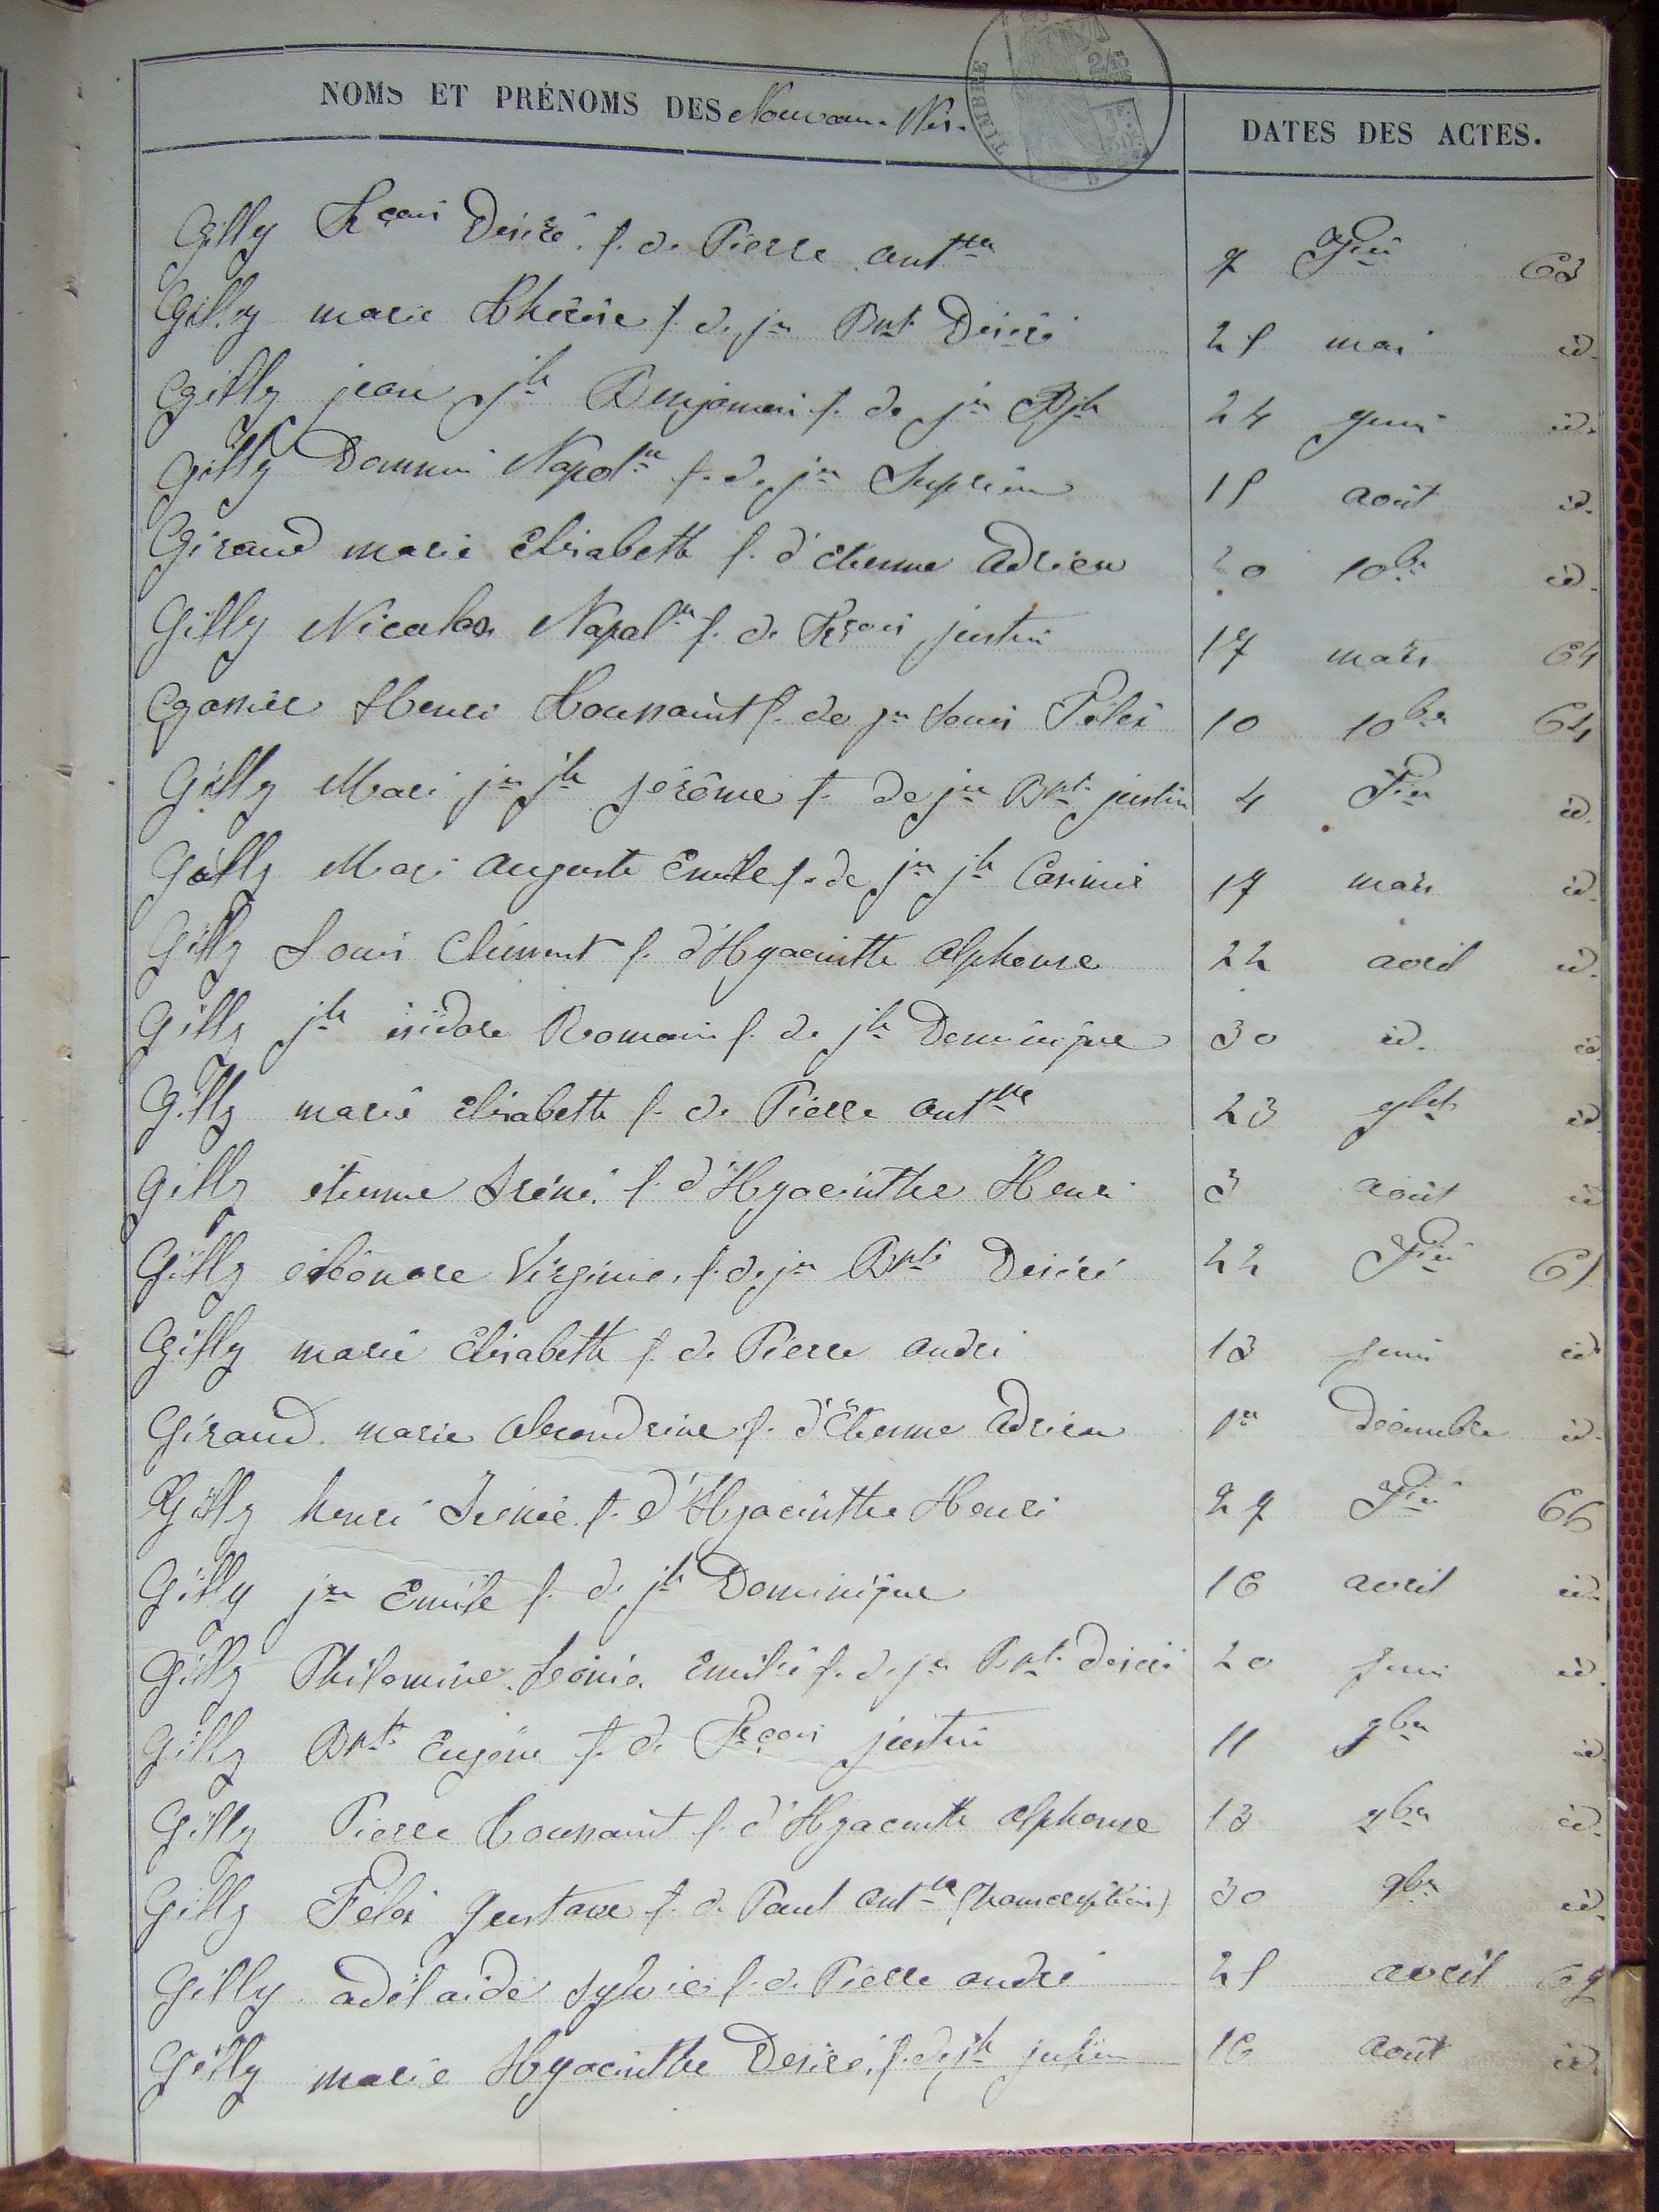 NOMS ET PRÉNOMS DES Nouveau-Nés. DATES DES ACTES.
TIMBRE
Gilly Frçois Désiré. f. de Pierre antne 7 Jer 63
Gilly marie Thérèse f. de jn Bpte Désiré 25 mai id.
Gilly jean jh Benjamin f. de jn Bjh 24 juin id.
Gilly Domnin Napoln f. de jn 15 août id.
Giraud marie Elisabeth f. d'Etienne adrien 20 10bre id.
Gilly Nicolas Napoln f. de Frçois justin 17 mars 64
Garnier Henri Toussaint f. de jn Louis Félix 10 10bre 64
Gilly Marie jn jh jérôme f. de jn Bpte justin 4 Jer id.
Gilly Marie auguste Emile f. de jn jh Casimir 17 mars id.
Gilly Louis Clément f. d'Hyacinthe alphonse 22 avril id.
Gilly jh isidore Romain f. de jh Dominique 30 id. id.
Gilly marie Elisabeth f. de Pierre antne 23 jlet id.
Gilly étienne Iréné. f. d'Hyacinthe Henri 3 août id.
Gilly éléonore Virginie. f. de jn Bpte Désiré 22 Jer 65
Gilly marie Elisabeth f. de Pierre andré 13 juin id.
Giraud marie alexandrine f. d'Etienne adrien 1er décembre id.
Gilly henri Irénée. f. d'Hyacinthe Henri 27 Jer 66
Gilly jn Emile f. de jh Dominique 16 avril id.
Gilly Philomine. Léonie. Emilie f. de jn Bpte désiré 20 juin id.
Gilly Bpte Eugène f. de Frçois justin 11 7bre id.
Gilly Pierre Toussaint f. d'Hyacinthe alphonse 13 9bre id.
Gilly Félix Gustave f. de Paul antne (transcription) 30 9bre id.
Gilly adélaïde sylvie f. de Pierre andré 25 avril 67
Gilly marie Hyacinthe Désiré. f. de jh julien 16 août id.